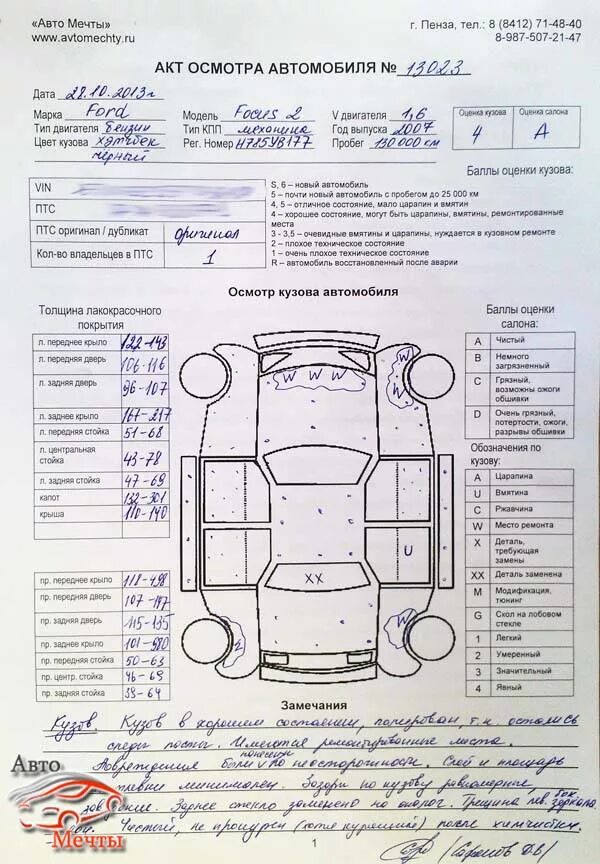 «Авто Мечты»
www.avtomechty.ru
г. Пенза, тел.: 8 (8412) 71-48-40
8-987-507-21-47
АКТ ОСМОТРА АВТОМОБИЛЯ № 13023
Дата 28.10.2013г
Марка Ford Модель Focus 2 V двигателя 1,6
Тип двигателя бензин Тип КПП механика Год выпуска 2007
Цвет кузова хэтчбек Рег. Номер Н785УВ177 Пробег 130000 км
чёрный
Оценка кузова Оценка салона
4 A
VIN
ПТС
ПТС оригинал / дубликат оригинал
Кол-во владельцев в ПТС 1
Баллы оценки кузова:
S, 6 – новый автомобиль
5 – почти новый автомобиль с пробегом до 25 000 км
4, 5 – отличное состояние, мало царапин и вмятин
4 – хорошее состояние, могут быть царапины, вмятины, ремонтированные
места
3 - 3,5 – очевидные вмятины и царапины, нуждается в кузовном ремонте
2 – плохое техническое состояние
1 – очень плохое техническое состояние
R – автомобиль восстановленный после аварии
Осмотр кузова автомобиля
Толщина лакокрасочного
покрытия
л. переднее крыло 122-143
л. передняя дверь 106-116
л. задняя дверь 96-107
л. заднее крыло 167-217
л. передняя стойка 51-68
л. центральная
стойка 43-78
л. задняя стойка 47-69
капот 132-301
крыша 110-140
пр. переднее крыло 118-498
пр. передняя дверь 107-147
пр. задняя дверь 115-135
пр. заднее крыло 101-580
пр. передняя стойка 50-63
пр. центр. стойка 46-69
пр. задняя стойка 39-64
W W W
W
U
XX
W
2
Баллы оценки
салона:
A Чистый
B Немного
загрязненный
C Грязный,
возможны ожоги
обшивки
D Очень грязный,
потертости, ожоги,
разрывы обшивки
Обозначения по
кузову:
A Царапина
U Вмятина
C Ржавчина
W Место ремонта
X Деталь,
требующая
замены
XX Деталь заменена
M Модификация,
тюнинг
G Скол на лобовом
стекле
1 Легкий
2 Умеренный
3 Значительный
4 Явный
Замечания
Кузов. Кузов в хорошем состоянии, полирован, т.к. остались
следы пасты. Имеются ремонтированные места.
Повреждения были нанесены по неосторожности. Слой и площадь
минимален. Зазоры по кузову равномерные,
заводские. Заднее стекло заменено на аналог. Трещина лев. бок. зеркала
Чистый, не прокурен (хотя курящий) после химчистки.
1
Авто
Мечты